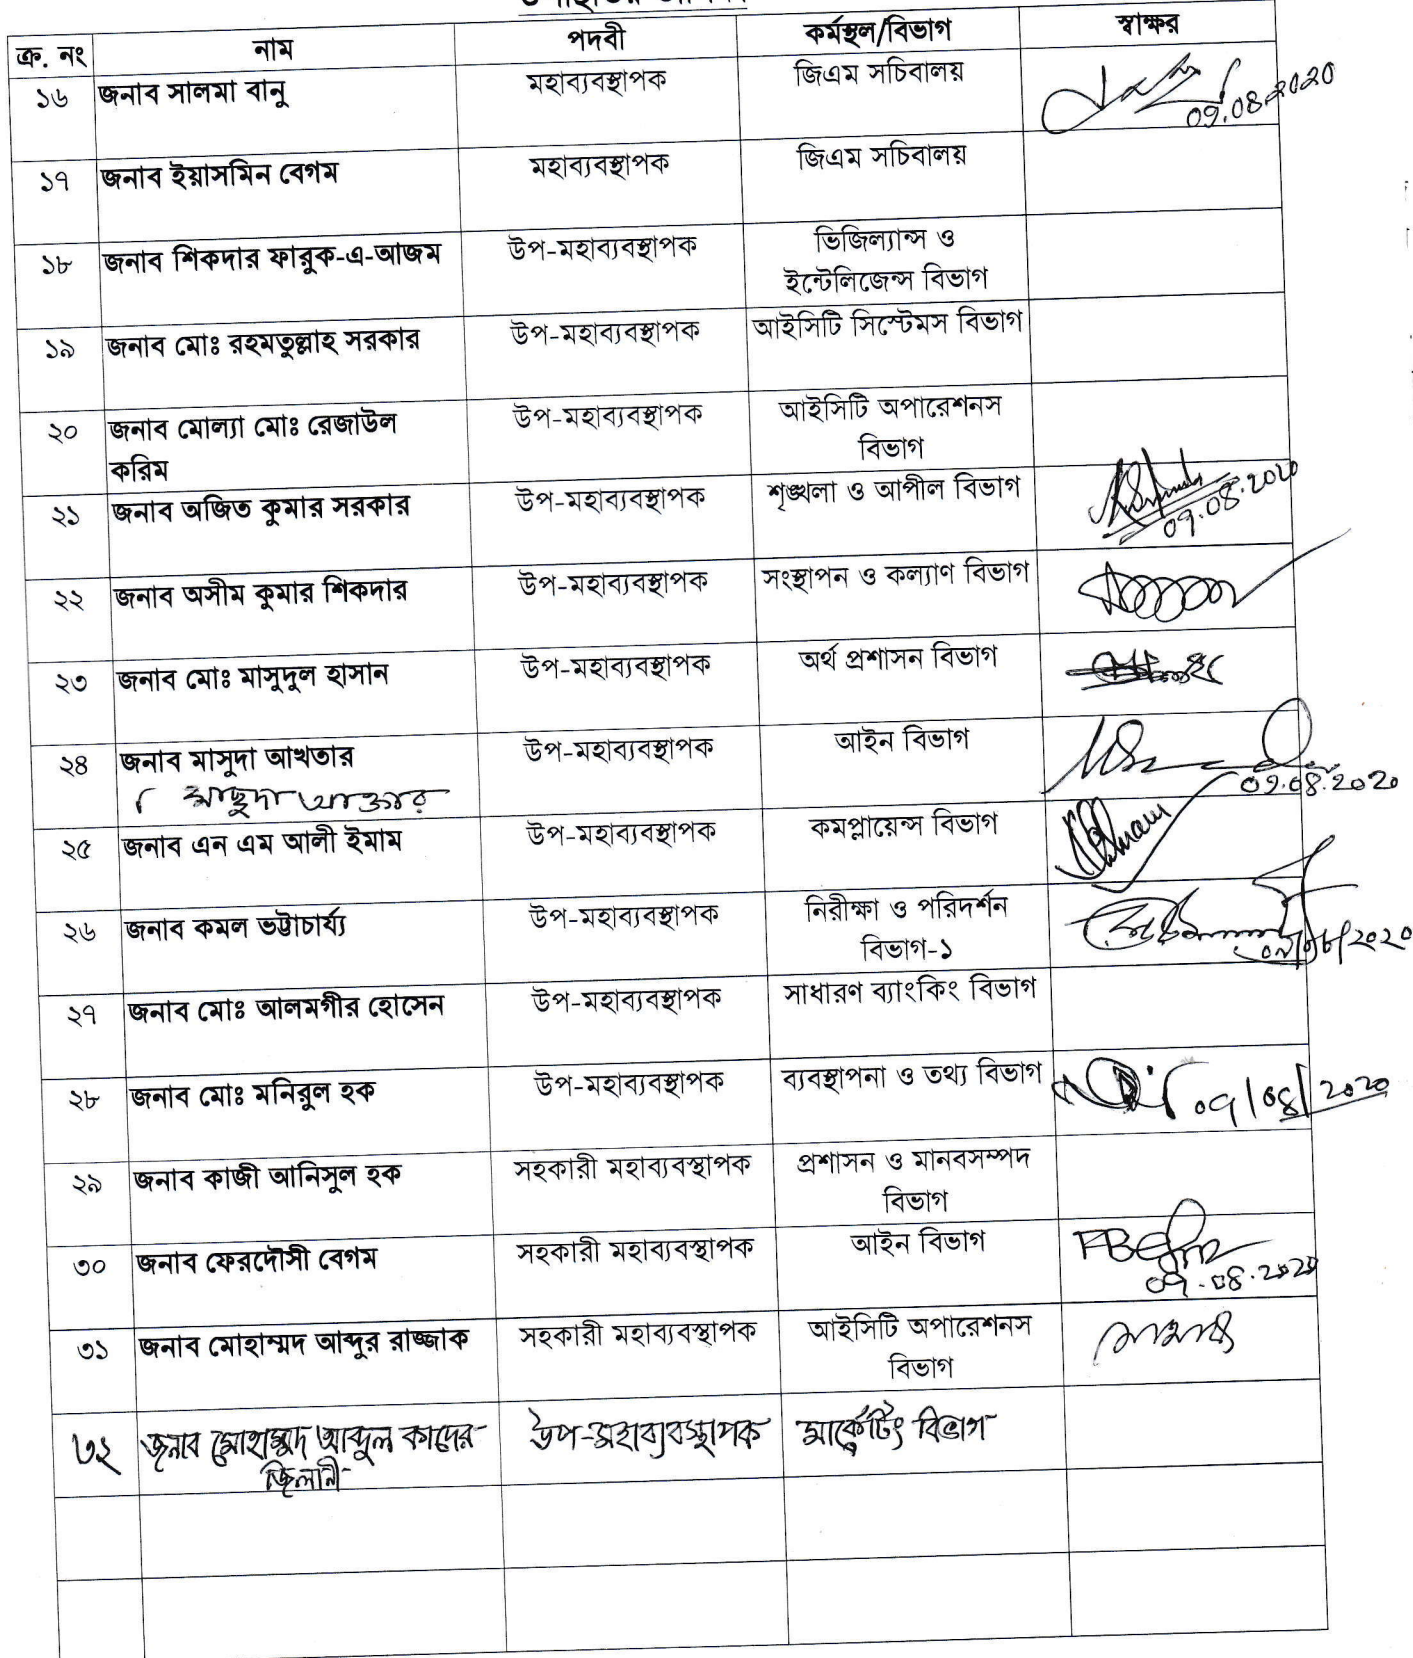 ক্র. নং নাম পদবী কর্মস্থল/বিভাগ স্বাক্ষর
১৬ জনাব সালমা বানু মহাব্যবস্থাপক জিএম সচিবালয়
09.08.2020
১৭ জনাব ইয়াসমিন বেগম মহাব্যবস্থাপক জিএম সচিবালয়
১৮ জনাব শিকদার ফারুক-এ-আজম উপ-মহাব্যবস্থাপক ভিজিল্যান্স ও
ইন্টেলিজেন্স বিভাগ
১৯ জনাব মোঃ রহমতুল্লাহ সরকার উপ-মহাব্যবস্থাপক আইসিটি সিস্টেমস বিভাগ
২০ জনাব মোল্যা মোঃ রেজাউল উপ-মহাব্যবস্থাপক আইসিটি অপারেশনস
করিম বিভাগ
২১ জনাব অজিত কুমার সরকার উপ-মহাব্যবস্থাপক শৃঙ্খলা ও আপীল বিভাগ
09.08.2020
২২ জনাব অসীম কুমার শিকদার উপ-মহাব্যবস্থাপক সংস্থাপন ও কল্যাণ বিভাগ
২৩ জনাব মোঃ মাসুদুল হাসান উপ-মহাব্যবস্থাপক অর্থ প্রশাসন বিভাগ
২৪ জনাব মাসুদা আখতার উপ-মহাব্যবস্থাপক আইন বিভাগ
মাছুদা আক্তার 09.08.2020
২৫ জনাব এন এম আলী ইমাম উপ-মহাব্যবস্থাপক কমপ্লায়েন্স বিভাগ
২৬ জনাব কমল ভট্টাচার্য্য উপ-মহাব্যবস্থাপক নিরীক্ষা ও পরিদর্শন
বিভাগ-১
২৭ জনাব মোঃ আলমগীর হোসেন উপ-মহাব্যবস্থাপক সাধারণ ব্যাংকিং বিভাগ
২৮ জনাব মোঃ মনিরুল হক উপ-মহাব্যবস্থাপক ব্যবস্থাপনা ও তথ্য বিভাগ 09/08/2020
২৯ জনাব কাজী আনিসুল হক সহকারী মহাব্যবস্থাপক প্রশাসন ও মানবসম্পদ
বিভাগ
৩০ জনাব ফেরদৌসী বেগম সহকারী মহাব্যবস্থাপক আইন বিভাগ
09.08.2020
৩১ জনাব মোহাম্মদ আব্দুর রাজ্জাক সহকারী মহাব্যবস্থাপক আইসিটি অপারেশনস
বিভাগ
৩২ জনাব মোহাম্মদ আব্দুল কাদের উপ-মহাব্যবস্থাপক মার্কেটিং বিভাগ
জিলানী